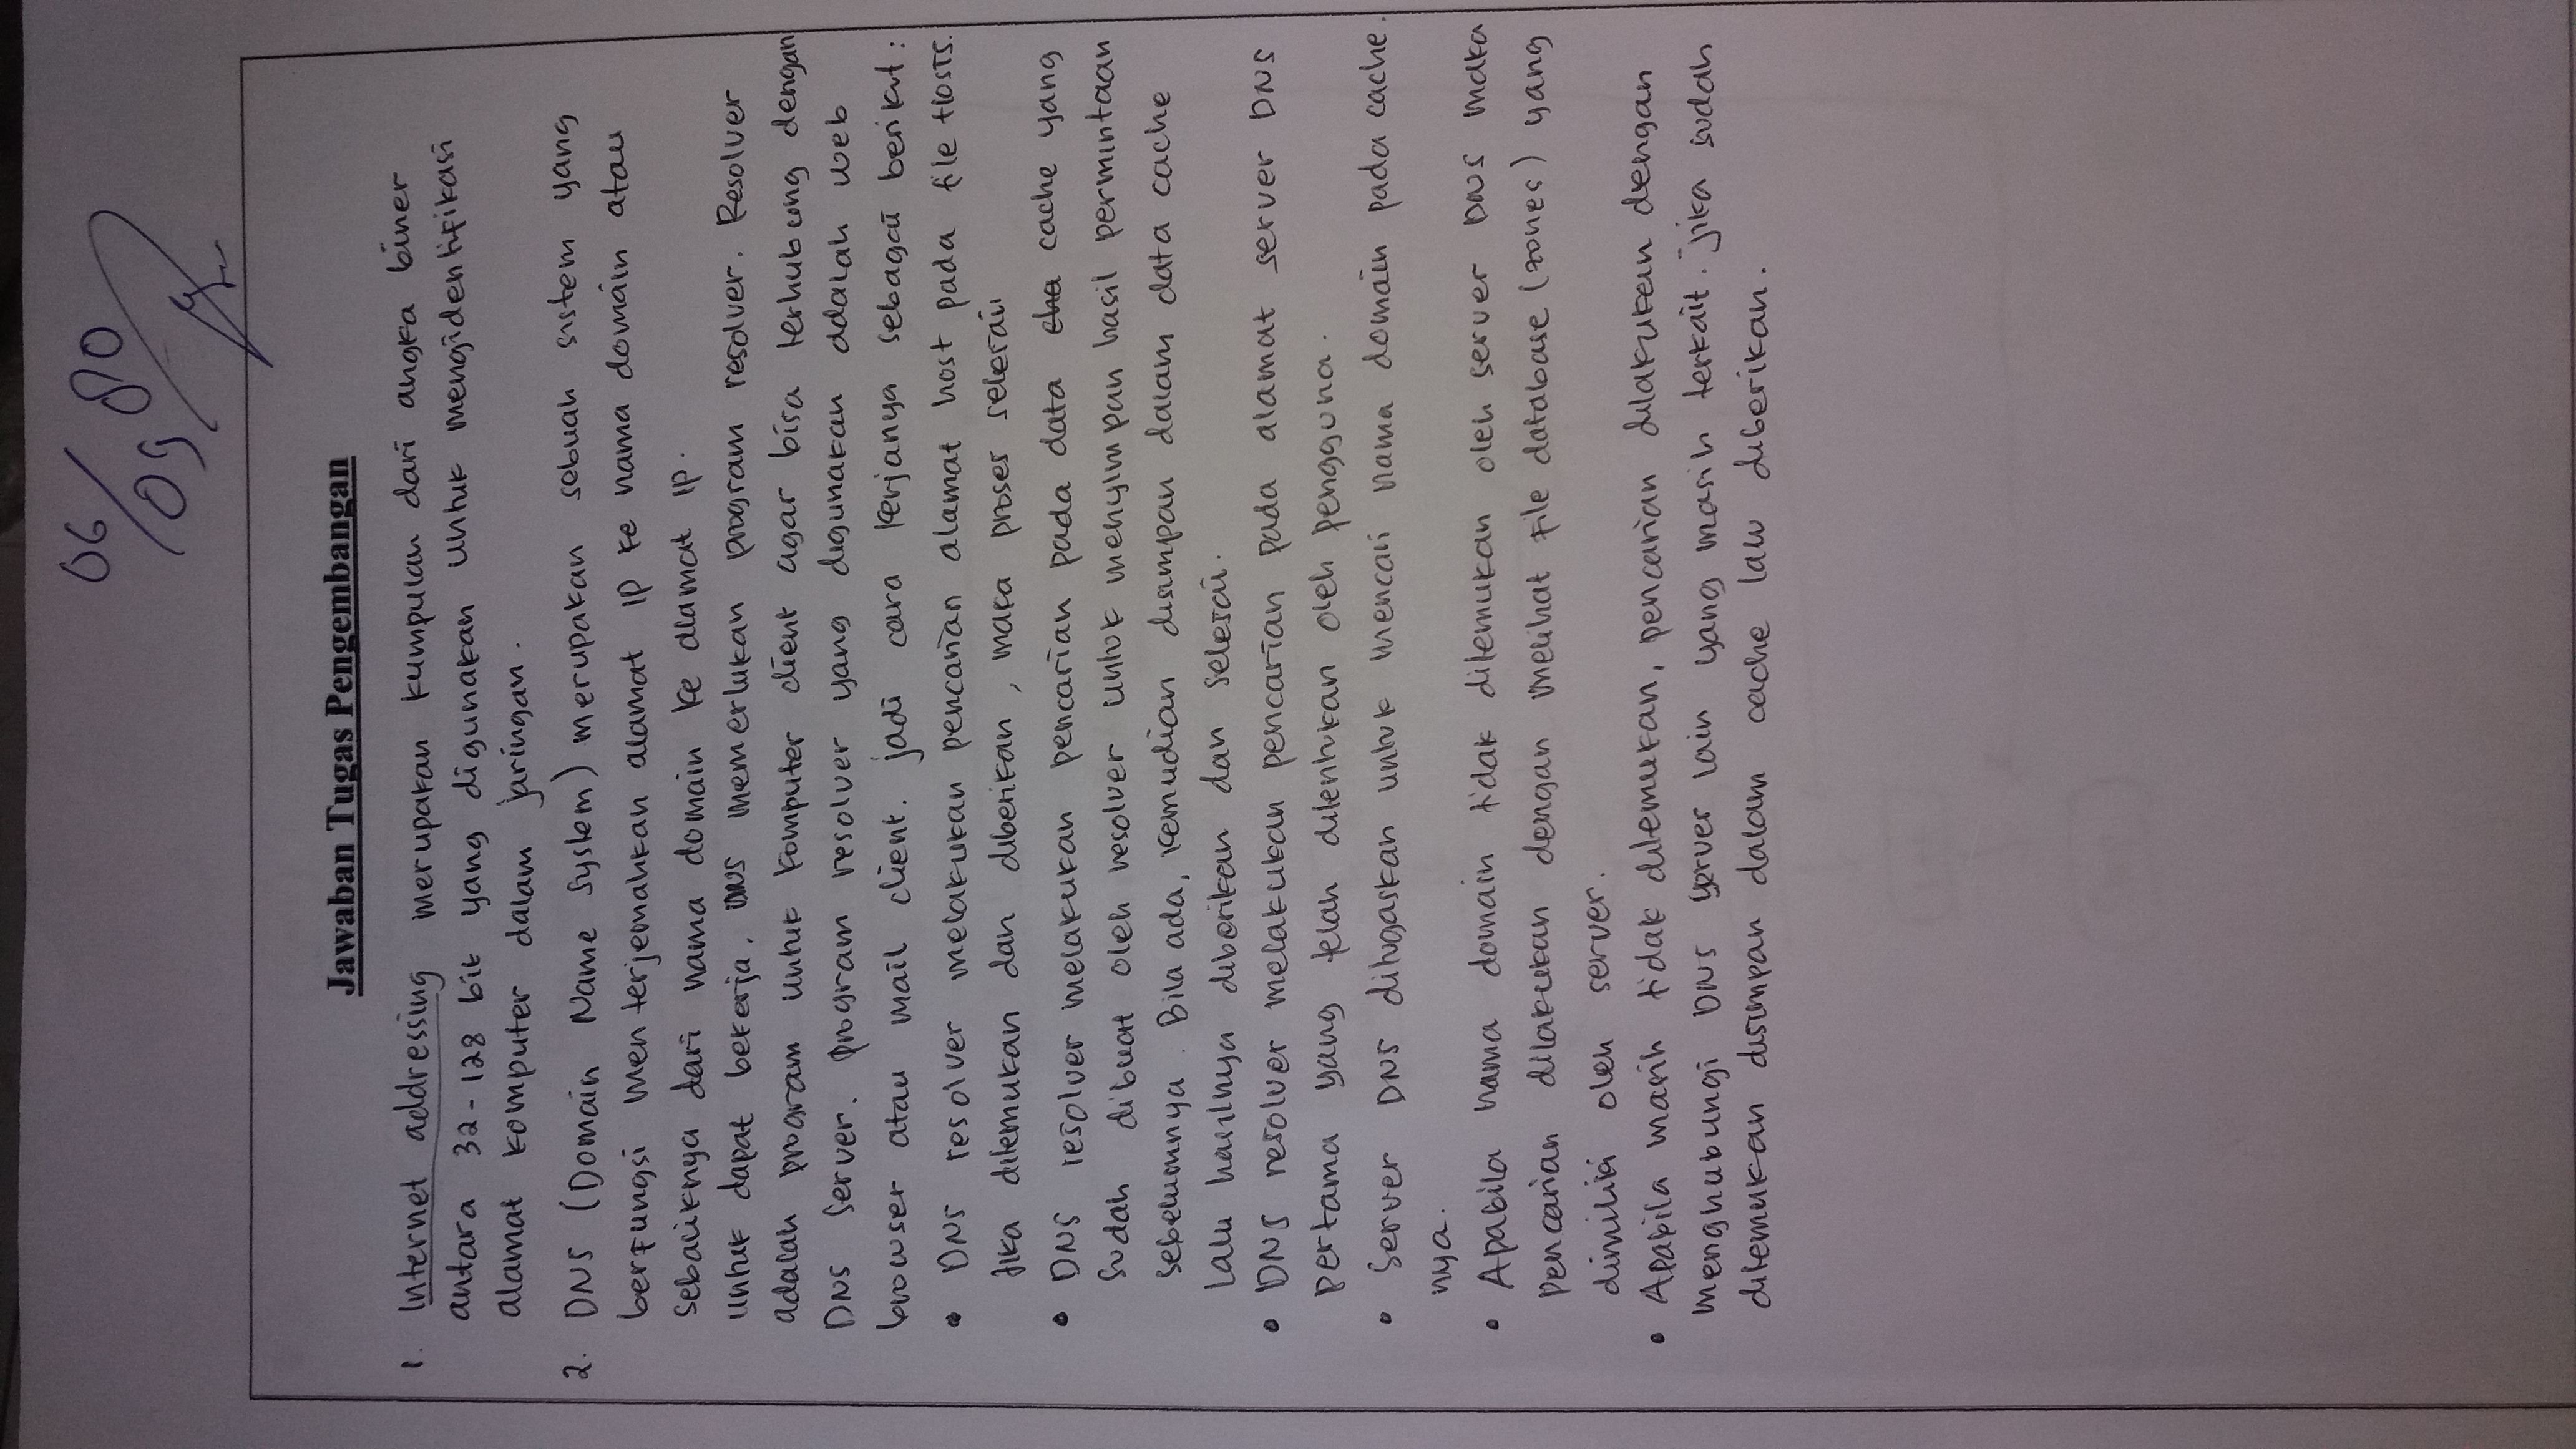 06/09 80
Jawaban Tugas Pengembangan
1. Internet addressing merupakan kumpulan dari angka biner
antara 32-128 bit yang digunakan untuk mengidentifikasi
alamat komputer dalam jaringan.
2. DNS (Domain Name System) merupakan sebuah sistem yang
berfungsi menterjemahkan alamat IP ke nama domain atau
sebaliknya dari nama domain ke alamat IP.
untuk dapat bekerja, DNS memerlukan program resolver. Resolver
adalah program untuk komputer client agar bisa terhubung dengan
DNS Server. program resolver yang digunakan adalah web
browser atau mail client. jadi cara kerjanya sebagai berikut:
• DNS resolver melakukan pencarian alamat host pada file HOSTS.
Jika ditemukan dan diberikan, maka proses selesai
• DNS resolver melakukan pencarian pada data cha cache yang
sudah dibuat oleh resolver untuk menyimpan hasil permintaan
sebelumnya. Bila ada, kemudian disimpan dalam data cache
lalu hasilnya diberikan dan selesai.
• DNS resolver melakukan pencarian pada alamat server DNS
pertama yang telah ditentukan oleh pengguna.
• Server DNS ditugaskan untuk mencari nama domain pada cache.
nya.
• Apabila nama domain tidak ditemukan oleh server DNS maka
pencarian dilakukan dengan melihat file database (zones) yang
dimiliki oleh server.
• Apabila masih tidak ditemukan, pencarian dilakukan dengan
menghubungi DNS server lain yang masih terkait. jika sudah
ditemukan disimpan dalam cache lalu diberikan.